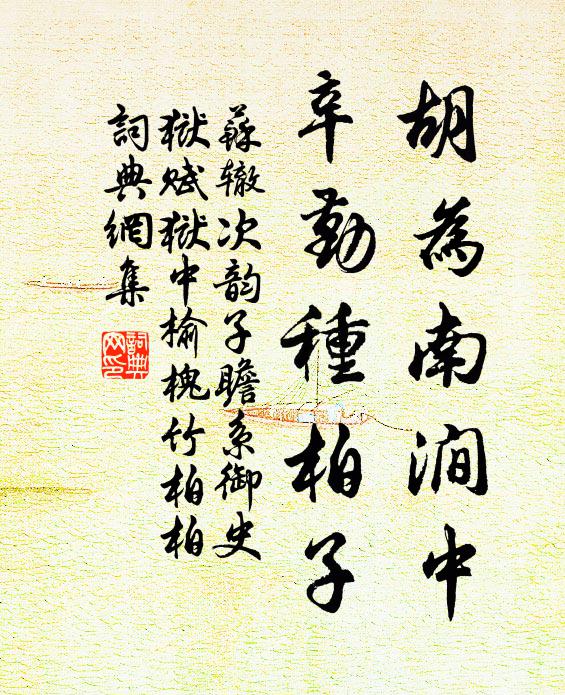 胡為南澗中
辛勤種柏子
蘇辙次韵子瞻系御史
獄赋獄中榆槐竹柏柏
詞典網集
詞典
网印